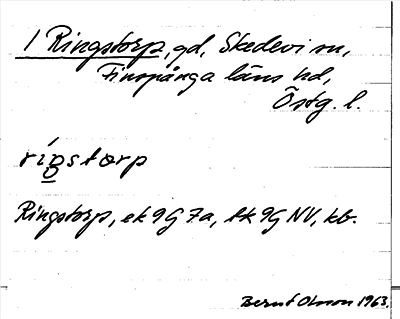 1 Ringstorp, gd, Skedevi sn,
Finspånga läns hd,
Östg. l.
rígstorp
Ringstorp, ek 9G 7a, tk 9G NV, kb.
Bernt Olsson 1963.